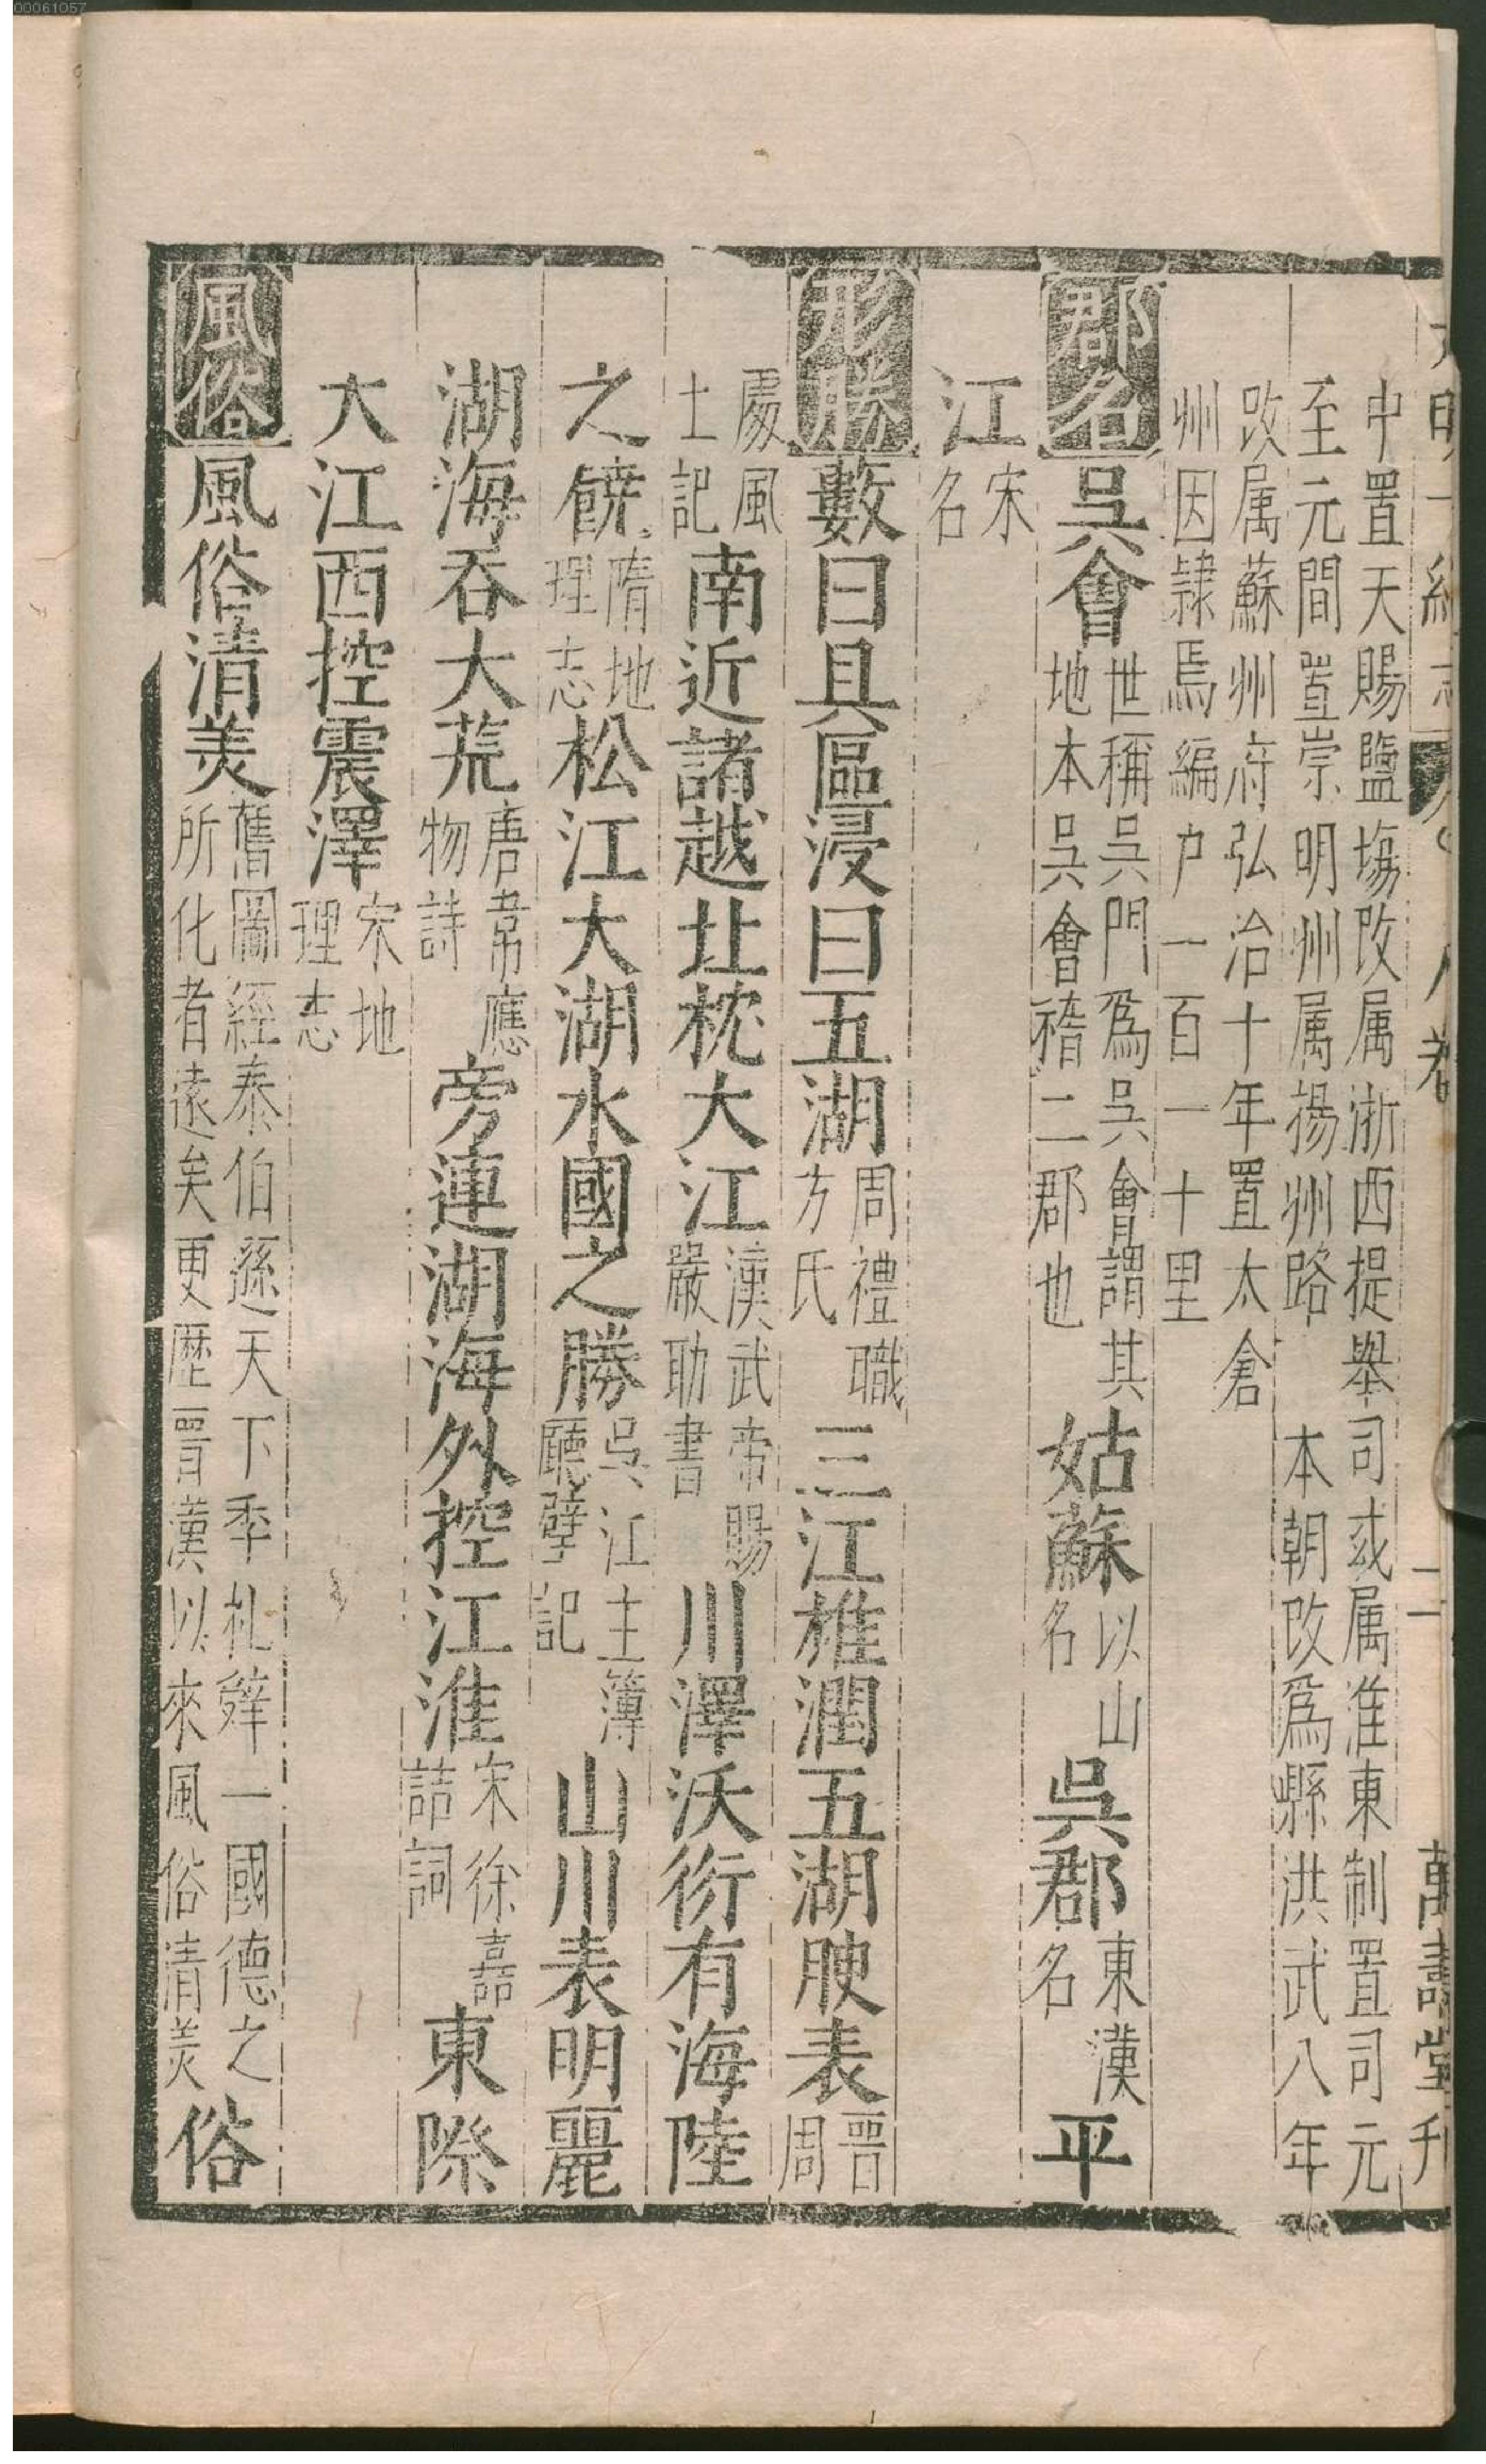 00061057
大明一統志 八卷 二 萬壽堂刋
中置天賜鹽塲改属浙西提舉司或属淮東制置司元
至元間置崇明州属揚州路 本朝改爲縣洪武八年
改属蘇州府弘治十年置太倉
州因隷焉編户一百一十里
郡名 吳會 世稱吳門爲吳會謂其地本吳會稽二郡也 姑蘇 以山名 吳郡 東漢名 平
江 宋名
形勝 藪曰具區浸曰五湖 周禮職方氏 三江榷潤五湖腴表 晉周
處風土記 南近諸越北枕大江 漢武帝賜嚴助書 川澤沃衍有海陸
之饒 隋地理志 松江大湖水國之勝 吳江主簿廳壁記 山川表明麗
湖海吞大荒 唐韋應物詩 旁連湖海外控江淮 宋徐嘉詰詞 東際
大江西控震澤 宋地理志
風俗 風俗清美 舊圖經泰伯遜天下季札辭一國德之所化者遠矣更歷晉漢以來風俗清美 俗